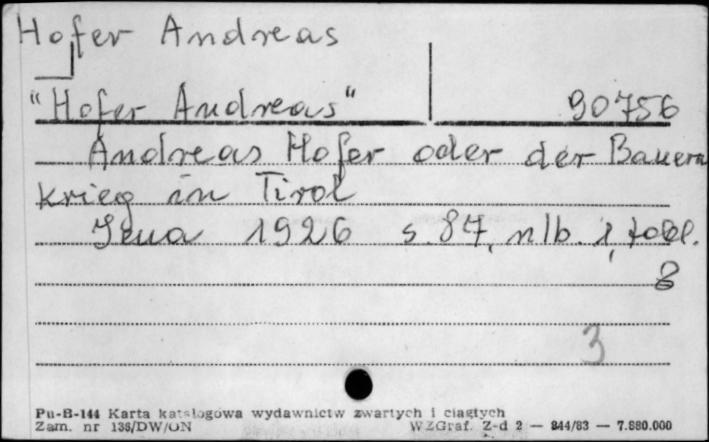 Hofer Andreas
"Hofer Andreas" 90756
Andreas Hofer oder der Bauern
krieg in Tirol
Jena 1926 s. 84, nlb. 1, tabl.
8
3
Pu-B-144 Karta katalogowa wydawnictw zwartych i ciągłych
Zam. nr 136/DW/ON WZGraf. Z-d 2 — 844/83 — 7.880.000